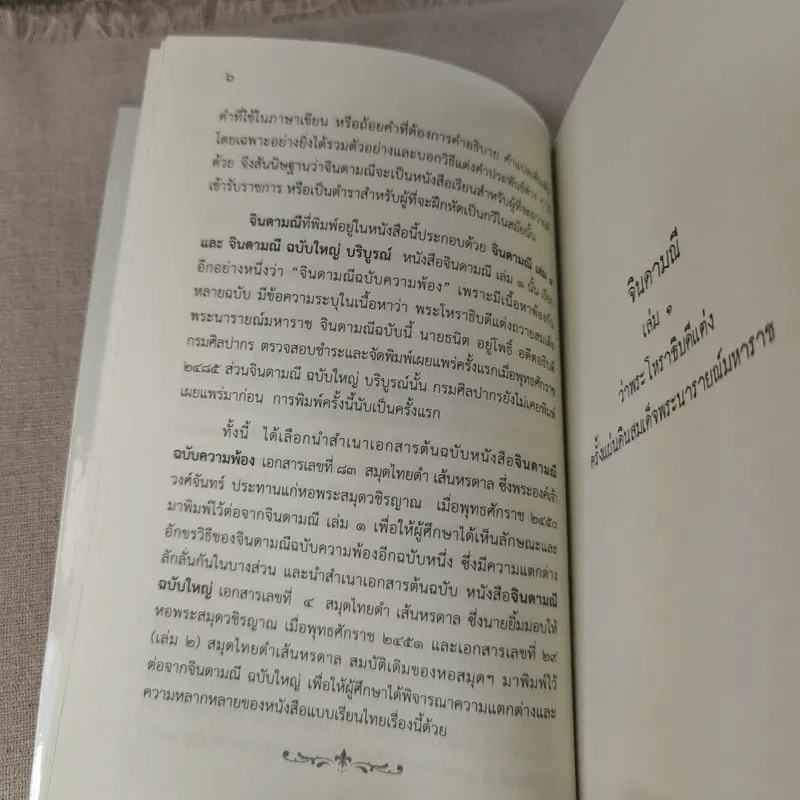 ๖
คำที่ใช้ในภาษาเขียน หรือถ้อยคำที่ต้องการคำอธิบาย คำแปลเพิ่มเติม
โดยเฉพาะอย่างยิ่งได้รวมตัวอย่างและบอกวิธีแต่งคำประพันธ์ต่าง ๆ
ด้วย จึงสันนิษฐานว่าจินดามณีจะเป็นหนังสือเรียนสำหรับผู้ที่จะ
เข้ารับราชการ หรือเป็นตำราสำหรับผู้ที่จะฝึกหัดเป็นกวีในสมัยนั้น
จินดามณีที่พิมพ์อยู่ในหนังสือนี้ประกอบด้วย จินดามณี เล่ม ๑
และ จินดามณี ฉบับใหญ่ บริบูรณ์ หนังสือจินดามณี เล่ม ๑ นั้น เรียก
อีกอย่างหนึ่งว่า “จินดามณีฉบับความพ้อง” เพราะมีเนื้อหาพ้องกัน
หลายฉบับ มีข้อความระบุในเนื้อหาว่า พระโหราธิบดีแต่งถวายสมเด็จ
พระนารายณ์มหาราช จินดามณีฉบับนี้ นายธนิต อยู่โพธิ์ อดีตอธิบดี
กรมศิลปากร ตรวจสอบชำระและจัดพิมพ์เผยแพร่ครั้งแรกเมื่อพุทธศักราช
๒๔๘๕ ส่วนจินดามณี ฉบับใหญ่ บริบูรณ์นั้น กรมศิลปากรยังไม่เคยพิมพ์
เผยแพร่มาก่อน การพิมพ์ครั้งนี้นับเป็นครั้งแรก
ทั้งนี้ ได้เลือกนำสำเนาเอกสารต้นฉบับหนังสือจินดามณี
ฉบับความพ้อง เอกสารเลขที่ ๘๓ สมุดไทยดำ เส้นหรดาล ซึ่งพระองค์เจ้า
วงศ์จันทร์ ประทานแก่หอพระสมุดวชิรญาณ เมื่อพุทธศักราช ๒๔๕๐
มาพิมพ์ไว้ต่อจากจินดามณี เล่ม ๑ เพื่อให้ผู้ศึกษาได้เห็นลักษณะและ
อักขรวิธีของจินดามณีฉบับความพ้องอีกฉบับหนึ่ง ซึ่งมีความแตกต่าง
ลักลั่นกันในบางส่วน และนำสำเนาเอกสารต้นฉบับ หนังสือจินดามณี
ฉบับใหญ่ เอกสารเลขที่ ๔ สมุดไทยดำ เส้นหรดาล ซึ่งนายยิ้มมอบให้
หอพระสมุดวชิรญาณ เมื่อพุทธศักราช ๒๔๕๑ และเอกสารเลขที่ ๒๙
(เล่ม ๒) สมุดไทยดำเส้นหรดาล สมบัติเดิมของหอสมุดฯ มาพิมพ์ไว้
ต่อจากจินดามณี ฉบับใหญ่ เพื่อให้ผู้ศึกษาได้พิจารณาความแตกต่างและ
ความหลากหลายของหนังสือแบบเรียนไทยเรื่องนี้ด้วย
จินดามณี
เล่ม ๑
ว่าพระโหราธิบดีแต่ง
ครั้งแผ่นดินสมเด็จพระนารายณ์มหาราช